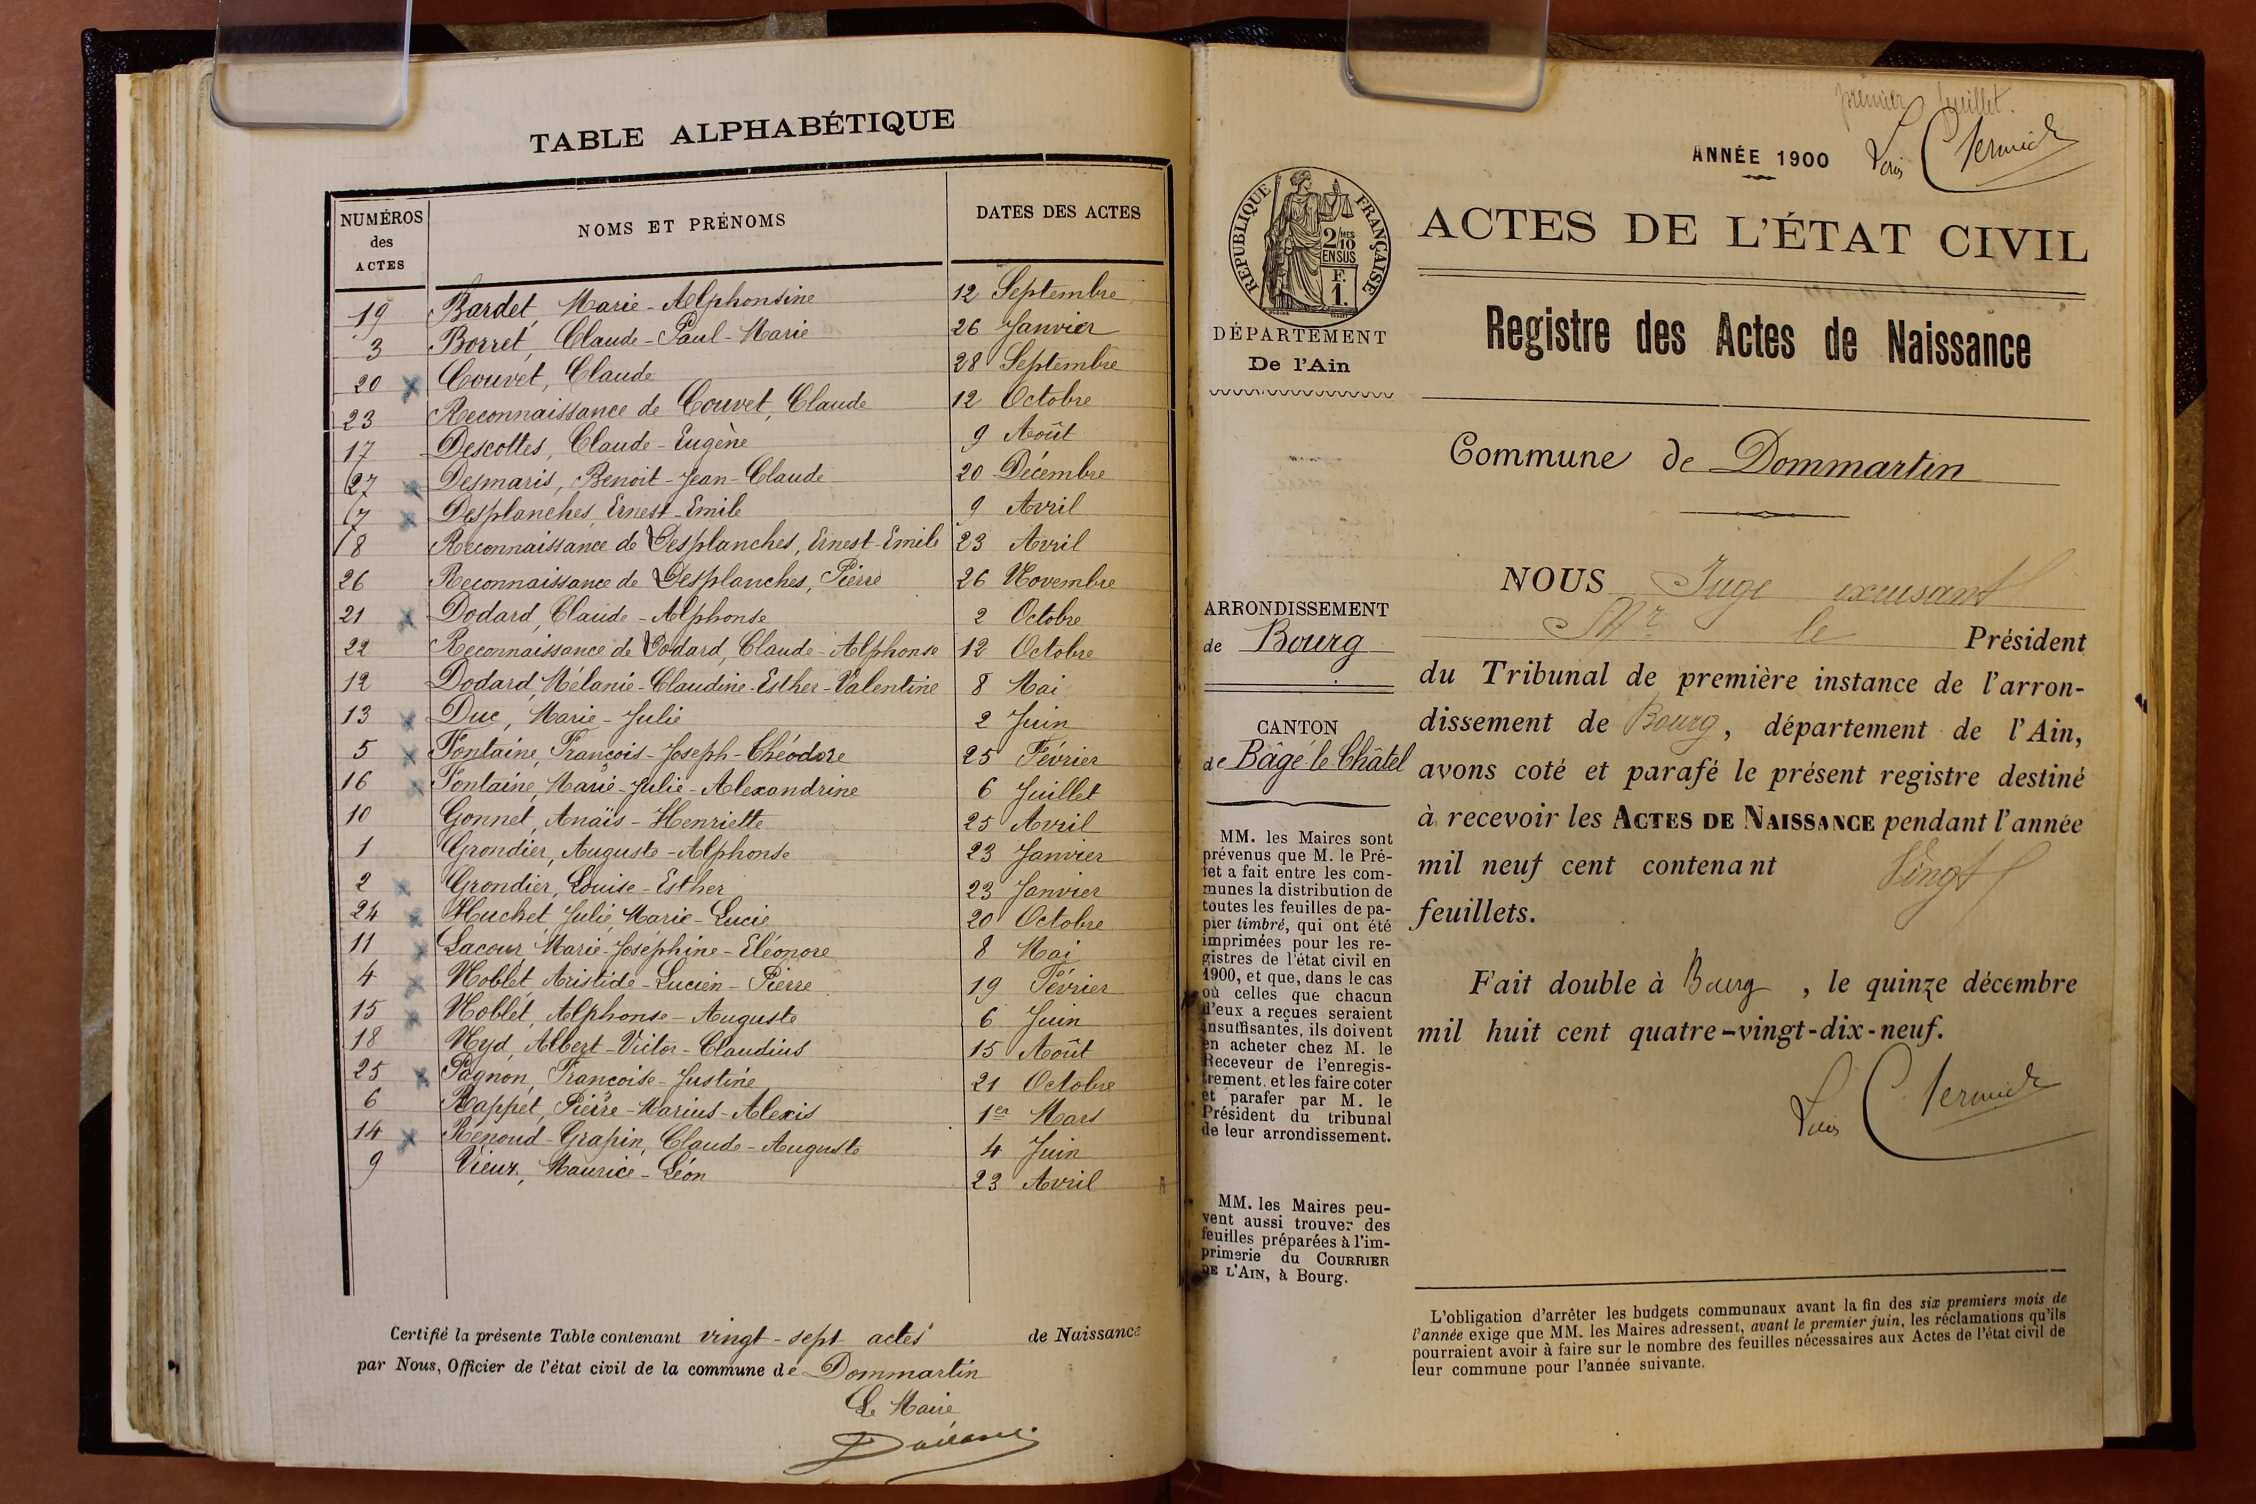 TABLE ALPHABÉTIQUE
NUMÉROS des ACTES
NOMS ET PRÉNOMS
DATES DES ACTES
19 Bardet, Marie-Alphonsine 12 Septembre
3 Borret, Claude-Paul-Marie 26 Janvier
20 x Couvet, Claude 28 Septembre
23 Reconnaissance de Couvet, Claude 12 Octobre
17 Descottes, Claude-Eugène 9 Août
27 x Desmaris, Benoit-Jean-Claude 20 Décembre
7 x Desplanches, Ernest-Emile 9 Avril
8 Reconnaissance de Desplanches, Ernest-Emile 23 Avril
26 Reconnaissance de Desplanches, Pierre 26 Novembre
21 x Dodard, Claude-Alphonse 2 Octobre
22 Reconnaissance de Dodard, Claude-Alphonse 12 Octobre
12 Dodard, Mélanie-Claudine-Esther-Valentine 8 Mai
13 x Duc, Marie-Julie 2 Juin
5 x Fontaine, François-Joseph-Théodore 25 Février
16 x Fontaine, Marie-Julie-Alexandrine 6 Juillet
10 Gonnet, Anaïs-Henriette 25 Avril
1 Grondier, Auguste-Alphonse 23 Janvier
2 x Grondier, Louise-Esther 23 Janvier
24 x Huchet, Julie, Marie-Lucie 20 Octobre
11 x Lacour, Marie-Joséphine-Eléonore 8 Mai
4 x Noblet, Aristide-Lucien-Pierre 19 Février
15 x Noblet, Alphonse-Auguste 6 Juin
18 Nyd, Albert-Victor-Claudius 15 Août
25 x Pagnon, Françoise-Justine 21 Octobre
6 Rappet, Pierre-Marius-Alexis 1er Mars
14 x Renoud-Grapin, Claude-Auguste 4 Juin
9 Vieux, Maurice-Léon 23 Avril
Certifié la présente Table contenant vingt-sept actes de Naissance
par Nous, Officier de l'état civil de la commune de Dommartin
Le Maire
premier feuillet.
ANNÉE 1900
RÉPUBLIQUE FRANÇAISE
2/10 MES
EN SUS
F.
1.
DÉPARTEMENT
De l'Ain
ACTES DE L'ÉTAT CIVIL
Registre des Actes de Naissance
Commune de Dommartin
ARRONDISSEMENT
de Bourg
CANTON
de Bâgé-le-Châtel
MM. les Maires sont
prévenus que M. le Pré-
fet a fait entre les com-
munes la distribution de
toutes les feuilles de pa-
pier timbré, qui ont été
imprimées pour les re-
gistres de l'état civil en
1900, et que, dans le cas
où celles que chacun
d'eux a reçues seraient
insuffisantes, ils doivent
en acheter chez M. le
Receveur de l'enregis-
trement, et les faire coter
et parafer par M. le
Président du tribunal
de leur arrondissement.
MM. les Maires peu-
vent aussi trouver des
feuilles préparées à l'im-
primerie du COURRIER
DE L'AIN, à Bourg.
NOUS Juge excusant
Mr le Président
du Tribunal de première instance de l'arron-
dissement de Bourg, département de l'Ain,
avons coté et parafé le présent registre destiné
à recevoir les ACTES DE NAISSANCE pendant l'année
mil neuf cent contenant Vingt
feuillets.
Fait double à Bourg, le quinze décembre
mil huit cent quatre-vingt-dix-neuf.
L'obligation d'arrêter les budgets communaux avant la fin des six premiers mois de
l'année exige que MM. les Maires adressent, avant le premier juin, les réclamations qu'ils
pourraient avoir à faire sur le nombre des feuilles nécessaires aux Actes de l'état civil de
leur commune pour l'année suivante.